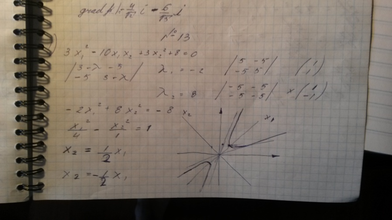 3x₁² - 10x₁x₂ + 3x₂² + 8 = 0
|3-λ -5|
|-5 3-λ|
λ₁ = -2 |5 -5|
|-5 5| (1 1)
λ₂ = 8 |-5 -5|
|-5 -5| (1 -1)
-2x₁² + 8x₂² = -8
x₁²/4 - x₂²/1 = 1
x₂ = 1/2 x₁
x₂ = -1/2 x₁
x₂
x₁